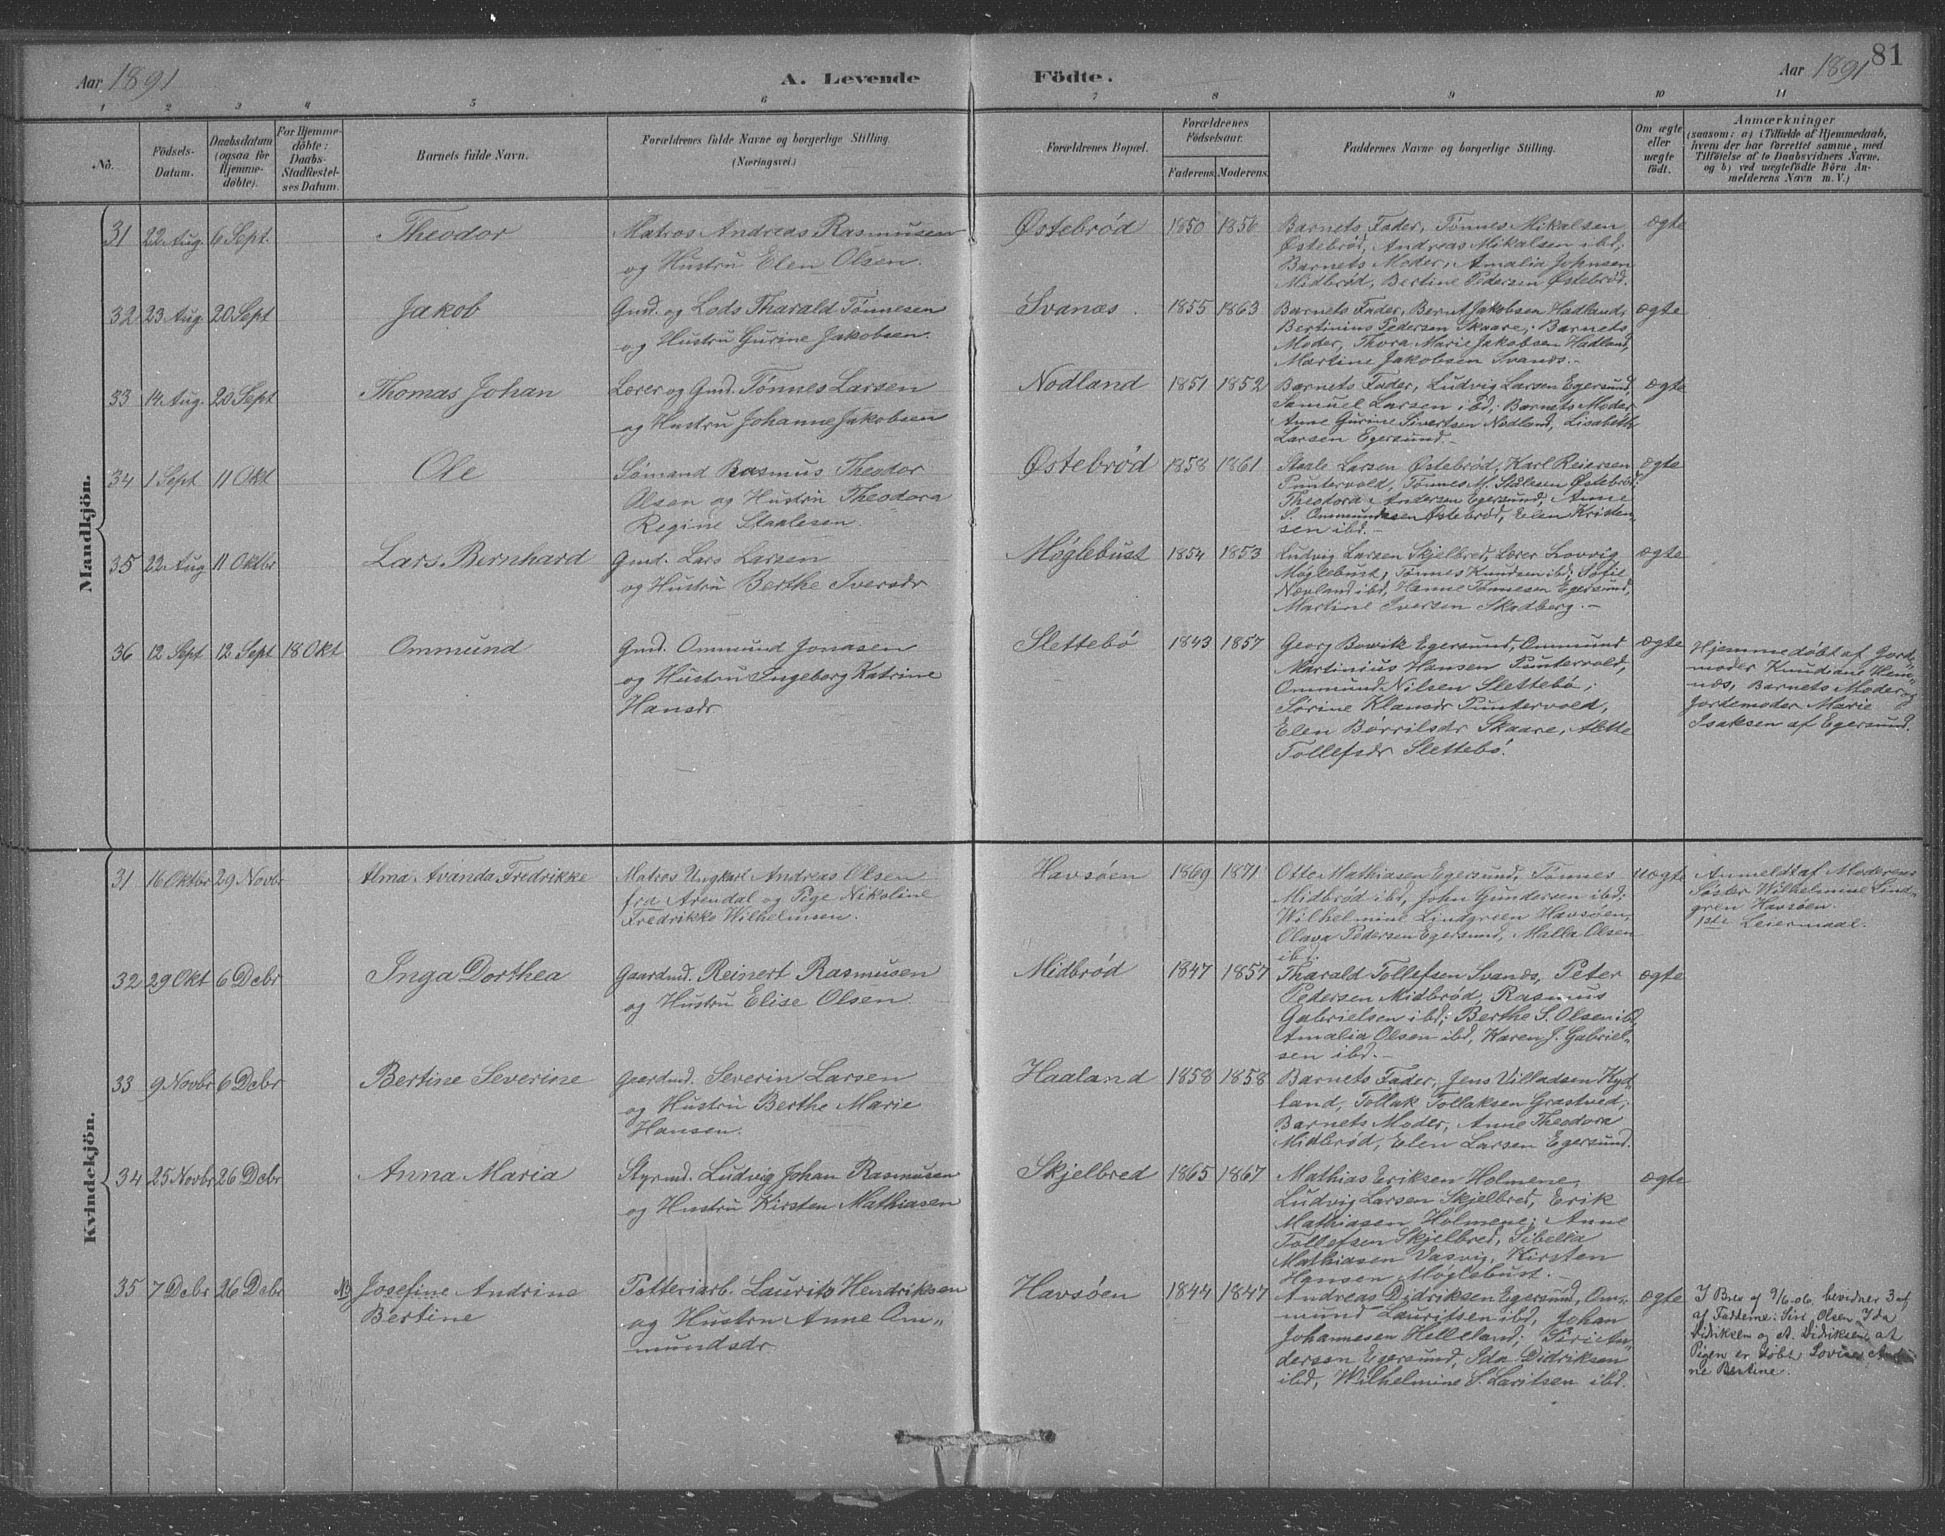 Aar 1891
A. Levende Födte.
Aar 1891
81
1 2 3 4 5 6 7 8 9 10 11
No.
Födsels-Datum.
Daabsdatum (ogsaa for Hjemme-döbte).
For Hjemme-döbte: Daabs-Stadfæstel-ses Datum.
Barnets fulde Navn.
Forældrenes fulde Navne og borgerlige Stilling.
(Næringsvei.)
Forældrenes Bopæl.
Forældrenes Födselsaar.
Faderens. Moderens.
Faddernes Navne og borgerlige Stilling.
Om ægte eller uægte födt.
Anmærkninger
(saasom: a) i Tilfælde af Hjemmedaab,
hvem der har forrettet samme, med
Tilföielse af to Daabsvidners Navne,
og b) ved uægtefödte Börn An-
melderens Navn m. V.)
Mandkjön.
31 22 Aug. 6 Sept. Theodor
Matros Andreas Rasmusen
og Hustru Elen Olsen.
Østebrød 1850 1856
Barnets Fader, Tønnes Mikalsen
Østebrød, Andreas Mikalsen ibd;
Barnets Moder, Amalia Johnsen
Midbrød, Bertine Pedersen Østebrød.
ægte
32 23 Aug 20 Sept Jakob
Gmd. og Lods Tharald Tönnesen
og Hustru Gurine Jakobsen.
Svanæs. 1855 1863
Barnets Fader, Bernt Jakobsen Hadland,
Bertinius Pedersen Skaare; Barnets
Moder, Thora Marie Jakobsen Hadland,
Martine Jakobsen Svanæs.-
ægte
33 14 Aug. 20 Sept Thomas Johan
Lærer og Gmd. Tønnes Larsen
og Hustru Johanne Jakobsen
Nodland 1851 1852
Barnets Fader, Ludvig Larsen Egersund,
Samuel Larsen ibd; Barnets Moder
Anne Gurine Sivertsen Nodland, Lisabeth
Larsen Egersund.-
ægte
34 1 Sept 11 Okt Ole
Sömand Rasmus Theodor
Olsen og Hustru Theodora
Regine Staalesen.
Østebrød 1858 1861
Staale Larsen Østebrød, Karl Reiersen
Puntervold, Tønnes M. Stalesen Østebrød;
Theodora Andersen Egersund, Anne
S. Ommundsen Østebrød, Elen Kristen-
sen ibd.-
ægte
35 22 Aug 11 Oktbr Lars Bernhard
Gmd. Lars Larsen
og Hustru Berthe Iversdr
Møglebust 1854 1853
Ludvig Larsen Skjelbred, Lærer Lovvig
Møglebust, Tønnes Knudsen ibd; Sofie
Nævland ibd, Hanne Tønnesen Egersund,
Martine Iversen Skadberg.-
ægte
36 12 Sept 12 Sept 18 Okt Ommund
Gmd. Ommund Jonasen
og Hustru Ingeborg Katrine
Hansdr
Slettebö 1843 1857
Georg Bowik Egersund, Ommund
Martinius Hansen Puntervold,
Ommund Nilsen Slettebö;
Sörine Klausdr Puntervold,
Elen Börrilsdr Skaare, Alette
Tollefsdr Slettebö.
ægte
Hjemmedöbt af Jord-
moder Knudiane Hem-
næs, Barnets Moder og
Jordemoder Marie
Isaksen af Egersund.
Kvindekjön.
31 16 Oktbr 29 Novbr Alma Avanda Fredrikke
Matros Ungkarl Andreas Olsen
fra Arendal og Pige Nikoline
Fredrikke Wilhelmsen.
Havsöen 1869 1871
Otto Mathiasen Egersund, Tønnes
Midbrød ibd, John Gundersen ibd;
Wilhelmine Lindgreen Havsöen,
Olava Pedersen Egersund, Malla Olsen
ibd.
uægte
Anmeldt af Moderens
Söster Wilhelmine Lind-
gren Havsöen.
1ste Leiermaal.
32 29 Okt 6 Debr Inga Dorthea
Gaardmd. Reinert Rasmusen
og Hustru Elise Olsen.
Midbrød 1847 1857
Tharald Tollefsen Svanæs, Peter
Pedersen Midbrød, Rasmus
Gabrielsen ibd; Berthe S. Olsen ibd,
Amalia Olsen ibd, Karen J. Gabriel-
sen ibd.-
ægte
33 9 Novbr 6 Debr Bertine Severine
Gaardmd. Severin Larsen
og Hustru Berthe Marie
Hansen.
Haaland 1858 1858
Barnets Fader, Jens Villadsen Hyd-
land, Tollak Tollaksen Grastved;
Barnets Moder, Anne Theodora
Midbrød, Elen Larsen Egersund.
34 25 Novbr 26 Debr Anna Maria
Styrmd. Ludvig Johan Rasmusen
og Hustru Kirsten Mathiasen
Skjelbred 1865 1867
Mathias Eriksen Holmene,
Ludvig Larsen Skjelbred, Erik
Mathiasen Holmene; Anne
Tollefsen Skjelbred, Sibella
Mathiasen Vasvig, Kirsten
Hansen Møglebust.-
ægte
35 7 Debr 26 Debr NB Josefine Andrine
Bertine
Potteriarb. Laurits Hendriksen
og Hustru Anne Om-
mundsdr
Havsöen 1844 1847
Andreas Didriksen Egersund, Om-
mund Lauritsen ibd, Johan
Johannesen Helleland; Siri An-
dersen Egersund, Ida Didriksen
ibd, Wilhelmine S. Laritsen ibd.
ægte
I Brev af 9/6.06. bevidner 3 af
af Fadderne: Siri Olsen, Ida
Didriksen og A. Didriksen, at
Pigen er döbt Lovise Andri-
ne Bertine.